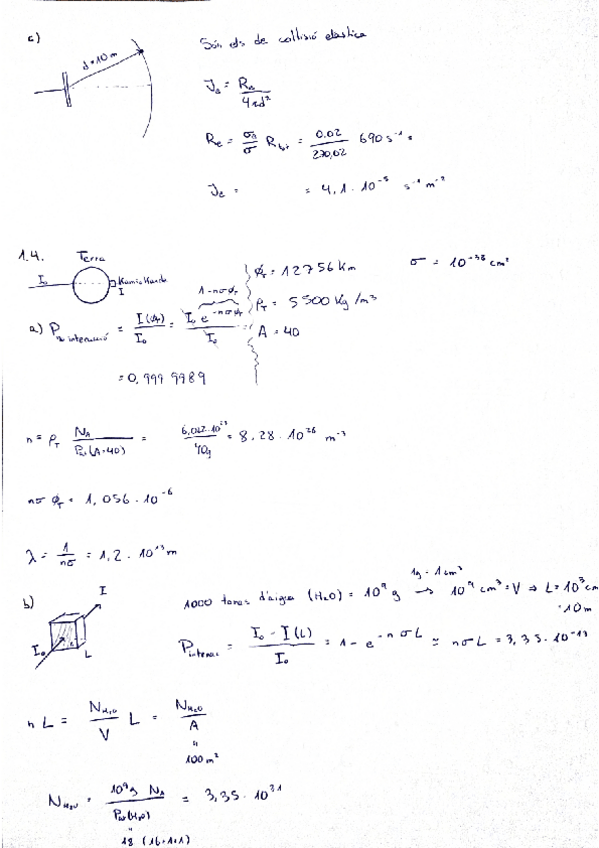 c)
d=10m
Són els de col·lisió elastica
Je = Re / 4πd²
Re = σe/σ Rtot = 0.02/270,02 690 s⁻¹ =
Je = = 4,1 · 10⁻⁵ s⁻¹ m⁻²
1.4.
Terra
I₀
Kamiokande
I
ϕT = 12756 Km
σ = 10⁻³⁸ cm²
ρT = 5500 Kg/m³
A = 40
1-nσϕT
a) P no interacció = I(ϕT)/I₀ = I₀ e^-nσϕT / I₀ =
= 0,9999989
n = ρT NA / Pm(A=40) = 6,022·10²³ / 40g = 8.28 · 10²⁸ m⁻³
nσ ϕT = 1,056 · 10⁻⁶
λ = 1/nσ = 1,2 · 10¹³ m
b)
I
I₀
L
1g - 1cm³
1000 tones d'aigua (H₂O) = 10⁹ g → 10⁹ cm³ = V ⇒ L = 10³ cm
= 10m
P interac = I₀ - I(L) / I₀ = 1 - e^-nσL ≃ nσL = 3,35 · 10⁻¹³
n L = N H₂O / V L = N H₂O / A
"
100 m²
N H₂O = 10⁹g NA / Pm(H₂O) = 3,35 · 10³¹
"
18 (16+1+1)